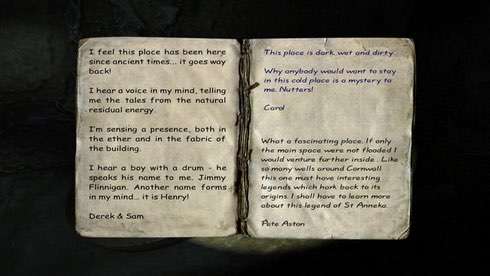 I feel this place has been here
since ancient times... it goes way
back!
I hear a voice in my mind, telling
me the tales from the natural
residual energy.
I'm sensing a presence, both in
the ether and in the fabric of
the building.
I hear a boy with a drum - he
speaks his name to me. Jimmy
Flinnigan. Another name forms
in my mind... it is Henry!
Derek & Sam
This place is dark, wet and dirty.
Why anybody would want to stay
in this cold place is a mystery to
me. Nutters!
Carol
What a fascinating place. If only
the main space were not flooded I
would venture further inside. Like
so many wells around Cornwall
this one must have interesting
legends which hark back to its
origins. I shall have to learn more
about this legend of St Anneka.
Pete Aston